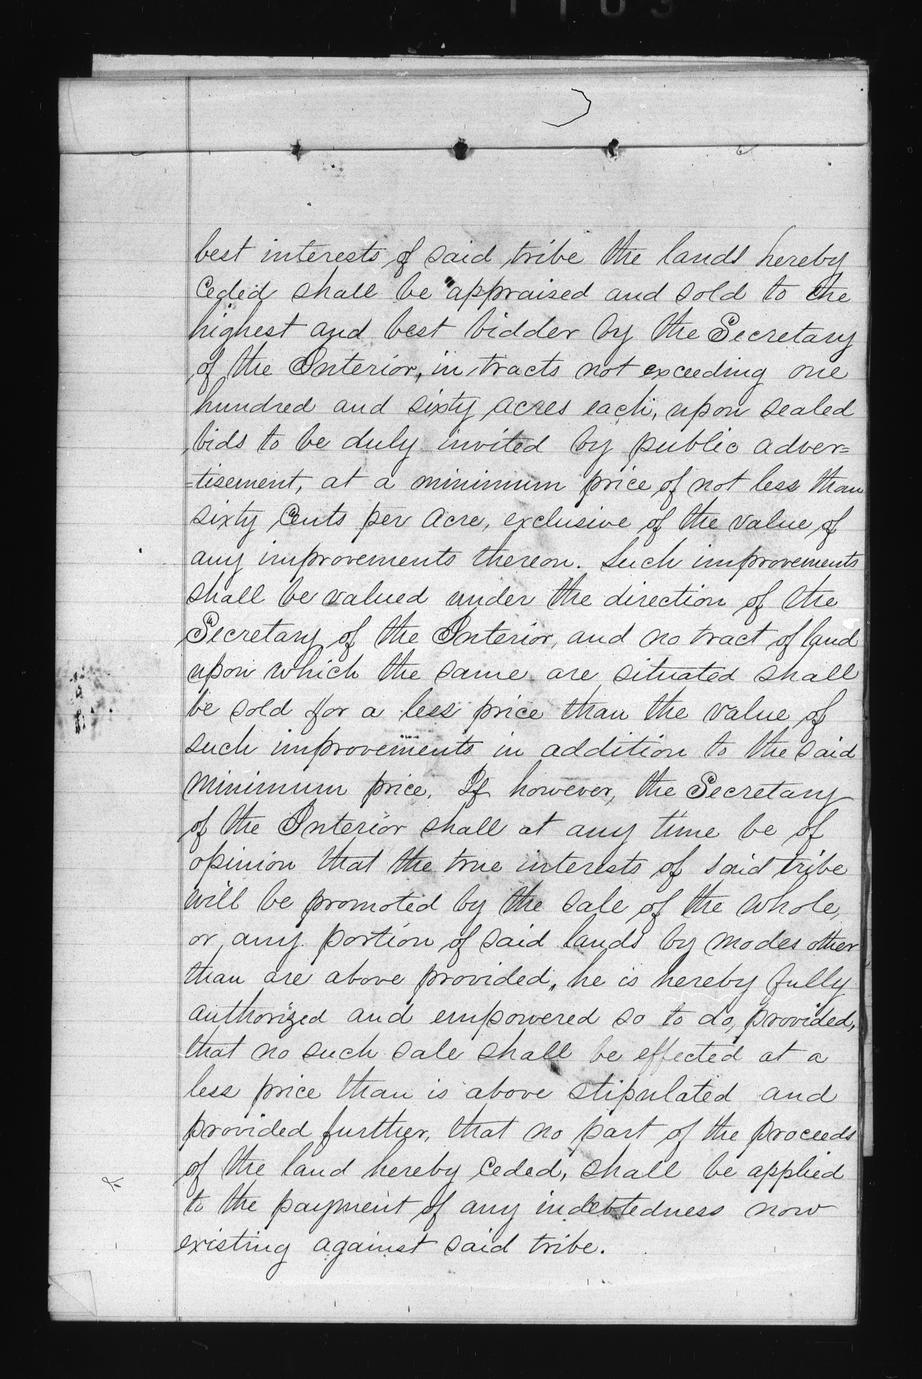 best interests of said tribe the lands hereby
ceded shall be appraised and sold to the
highest and best bidder by the Secretary
of the Interior, in tracts not exceeding one
hundred and sixty acres each, upon sealed
bids to be duly invited by public adver=
=tisement, at a minimum price of not less than
sixty cents per acre, exclusive of the value of
any improvements thereon. Such improvements
shall be valued under the direction of the
Secretary of the Interior, and no tract of land
upon which the same are situated shall
be sold for a less price than the value of
such improvements in addition to the said
minimum price. If however, the Secretary
of the Interior shall at any time be of
opinion that the true interests of said tribe
will be promoted by the sale of the whole,
or any portion of said lands by modes other
than are above provided, he is hereby fully
authorized and empowered so to do, provided,
that no such sale shall be effected at a
less price than is above stipulated and
provided further, that no part of the proceeds
of the land hereby ceded, shall be applied
to the payment of any indebtedness now
existing against said tribe.